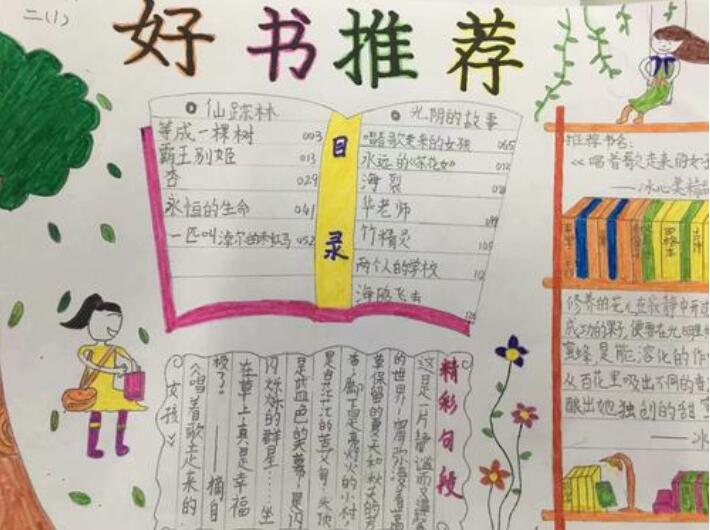 二(1)
好书推荐
仙踪林
等成一棵树 003
霸王别姬 013
杏 029
永恒的生命 041
一匹叫淖尔的枣红马 052
目录
光阴的故事
唱着歌走来的女孩 065
永远的《茶花女》
海裂
华老师
竹精灵
两个人的学校
海鸥飞去
推荐书名:
《唱着歌走来的女子
——冰心奖
修养的花儿在寂静中开
成功的果子便要在光明里
蜜蜂是能溶化的作
从百花里吸出不同的香
酿出她独创的甜蜜
——冰
精彩句段
这是一片静谧而又
的世界!
草保留的夏天和秋天的
香,脚下是高炉火的小村,
是白茫茫的苦艾甸,头顶
是
闪烁烁的群星……坐
在草上真是幸福
极了。 ——摘自
《唱着歌走来的
女孩》